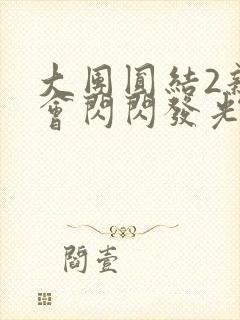 大團圓結2新
會閃閃發光
閻壹